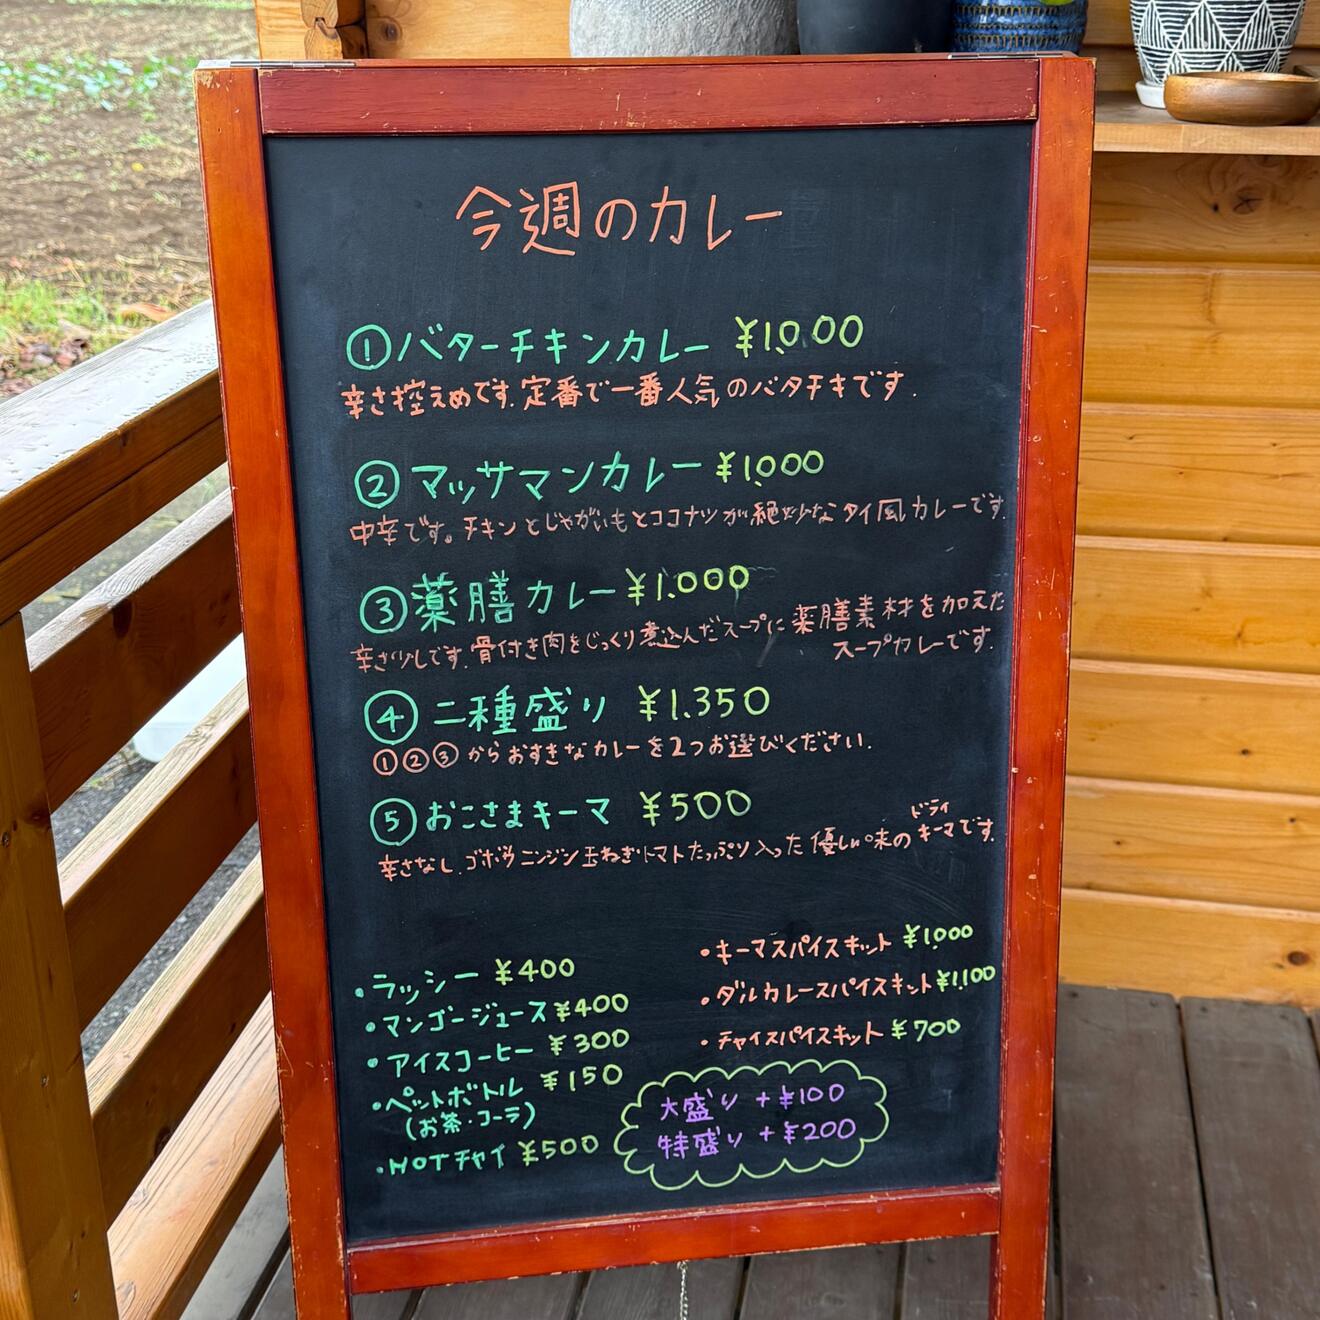 今週のカレー
①バターチキンカレー ¥1,000
辛さ控えめです.定番で一番人気のバタチキです.
②マッサマンカレー ¥1,000
中辛です。チキンとじゃがいもとココナツが絶妙なタイ風カレーです.
③薬膳カレー ¥1.000
辛さ少しです.骨付き肉をじっくり煮込んだスープに薬膳素材を加えた
スープカレーです.
④二種盛り ¥1.350
①②③からおすきなカレーを2つお選びください.
⑤おこさまキーマ ¥500
ドライ
辛さなし.ゴボウニンジン玉ねぎトマトたっぷり入った優しい味のキーマです.
・ラッシー ¥400
・マンゴージュース ¥400
・アイスコーヒー ¥300
・ペットボトル ¥150
(お茶・コーラ)
・HOTチャイ ¥500
・キーマスパイスキット ¥1,000
・ダルカレースパイスキット ¥1,100
・チャイスパイスキット ¥700
大盛り +¥100
特盛り +¥200